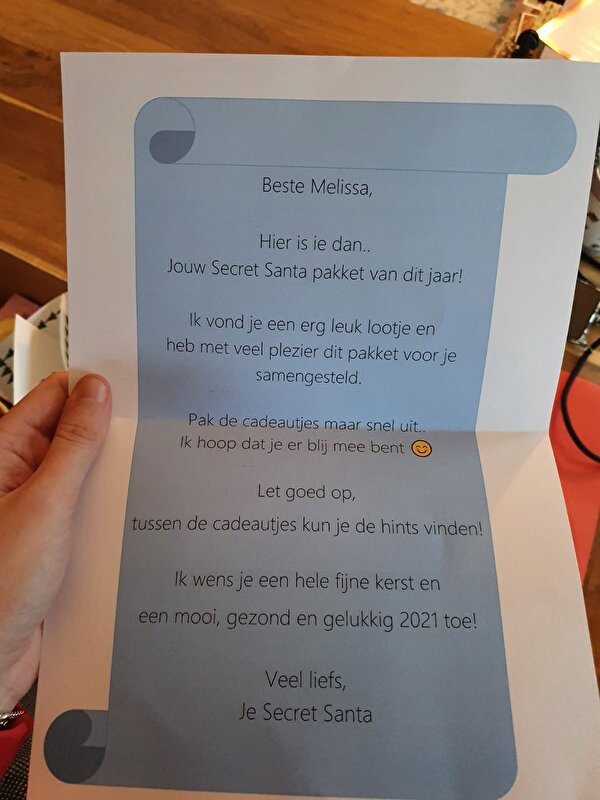 Beste Melissa,
Hier is ie dan..
Jouw Secret Santa pakket van dit jaar!
Ik vond je een erg leuk lootje en
heb met veel plezier dit pakket voor je
samengesteld.
Pak de cadeautjes maar snel uit..
Ik hoop dat je er blij mee bent 😊
Let goed op,
tussen de cadeautjes kun je de hints vinden!
Ik wens je een hele fijne kerst en
een mooi, gezond en gelukkig 2021 toe!
Veel liefs,
Je Secret Santa